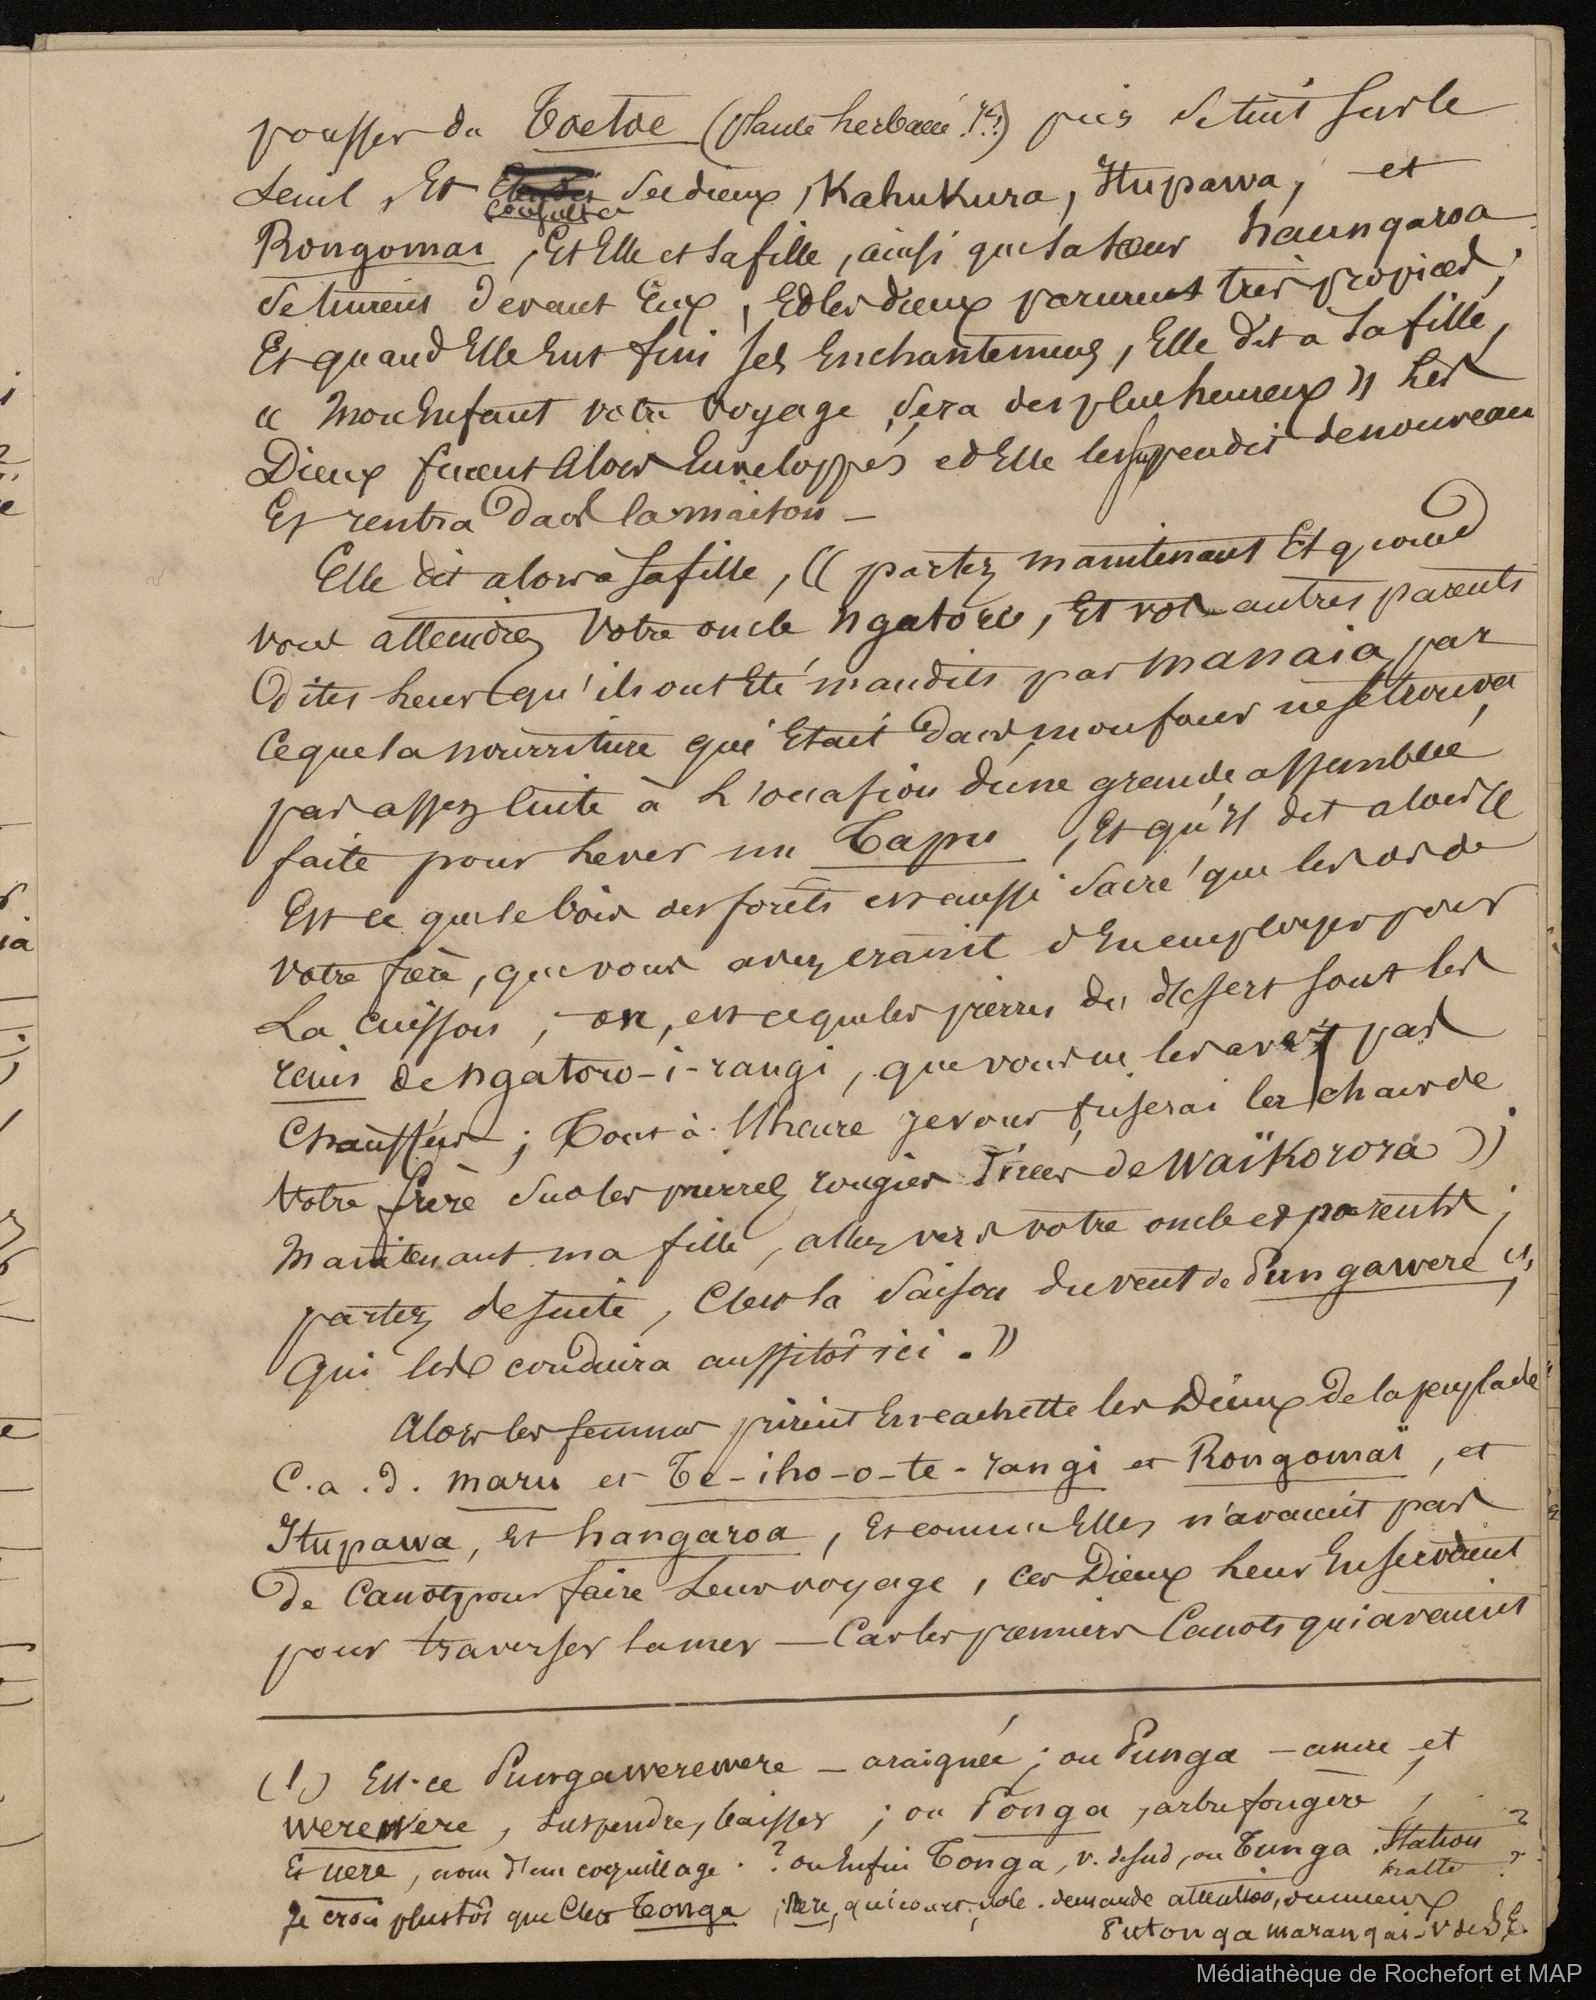 pousser du Toetoe (plante herbacée !?!) puis se tint sur le
seuil, Et consulter ses dieux, Kahukura, Itupawa, et
Rongomai, Et Elle et sa fille, ainsi que sa sœur haungaroa
se tinrent devant Eux, Et les dieux parurent très propices;
Et quand Elle Eut fini ses Enchantements, Elle dit a sa fille,
« Mon Enfant votre voyage sera des plus heureux » Les
Dieux furent Alors Enveloppés et Elle les suspendit de nouveau
Et rentra dans la maison —
Elle dit alors à sa fille, « partez maintenant Et quand
vous atteindrez votre oncle ngatoro, Et vos autres parents
Dites leur qu'ils ont Eté maudits par manaia, par
ce que la nourriture qui Etait dans mon four ne se trouva
pas assez cuite à l'occasion d'une grande assemblée
faite pour lever un Tapu, Et qu'il dit alors «
Est ce que le bois des forêts est aussi sacré que les os de
votre frère, que vous avez craint d'En employer pour
La cuisson; ou, est ce que les pierres du désert sont les
reins de ngatoro-i-rangi, que vous ne les avez pas
Chauffées; Tout à l'heure je vous friserai les chairs de
votre frère sur les pierres rougies tirées de Waïkorora »;
Maintenant ma fille, allez vers votre oncle et parents;
partez de suite, C'est la saison du vent de Pungawere (1),
Qui les conduira aussitôt ici. »
Alors les femmes prirent En cachette les Dieux de la peuplade
C.a.d. maru et Te-iho-o-te-rangi et Rongomaï, et
Itupawa, Et hangaroa, Et comme Elles n'avaient pas
De Canots pour faire Leur voyage, ces Dieux leur En servirent
pour traverser la mer — Car les premiers Canots qui avaient
(1) Est-ce Pungawerewere — araignée; ou Punga — ancre et
werewere, suspendre, baisser; ou Ponga, arbre fougère,
Et uere, nom d'un coquillage. ? ou Enfin Tonga, v. de sud, ou Tunga. Station ?
natte ?
Je crois plustôt que C'est Tonga; Rere, qui court, vole. demande attention, ou mieux
Putonga marangai. V de S.E.
Médiathèque de Rochefort et MAP